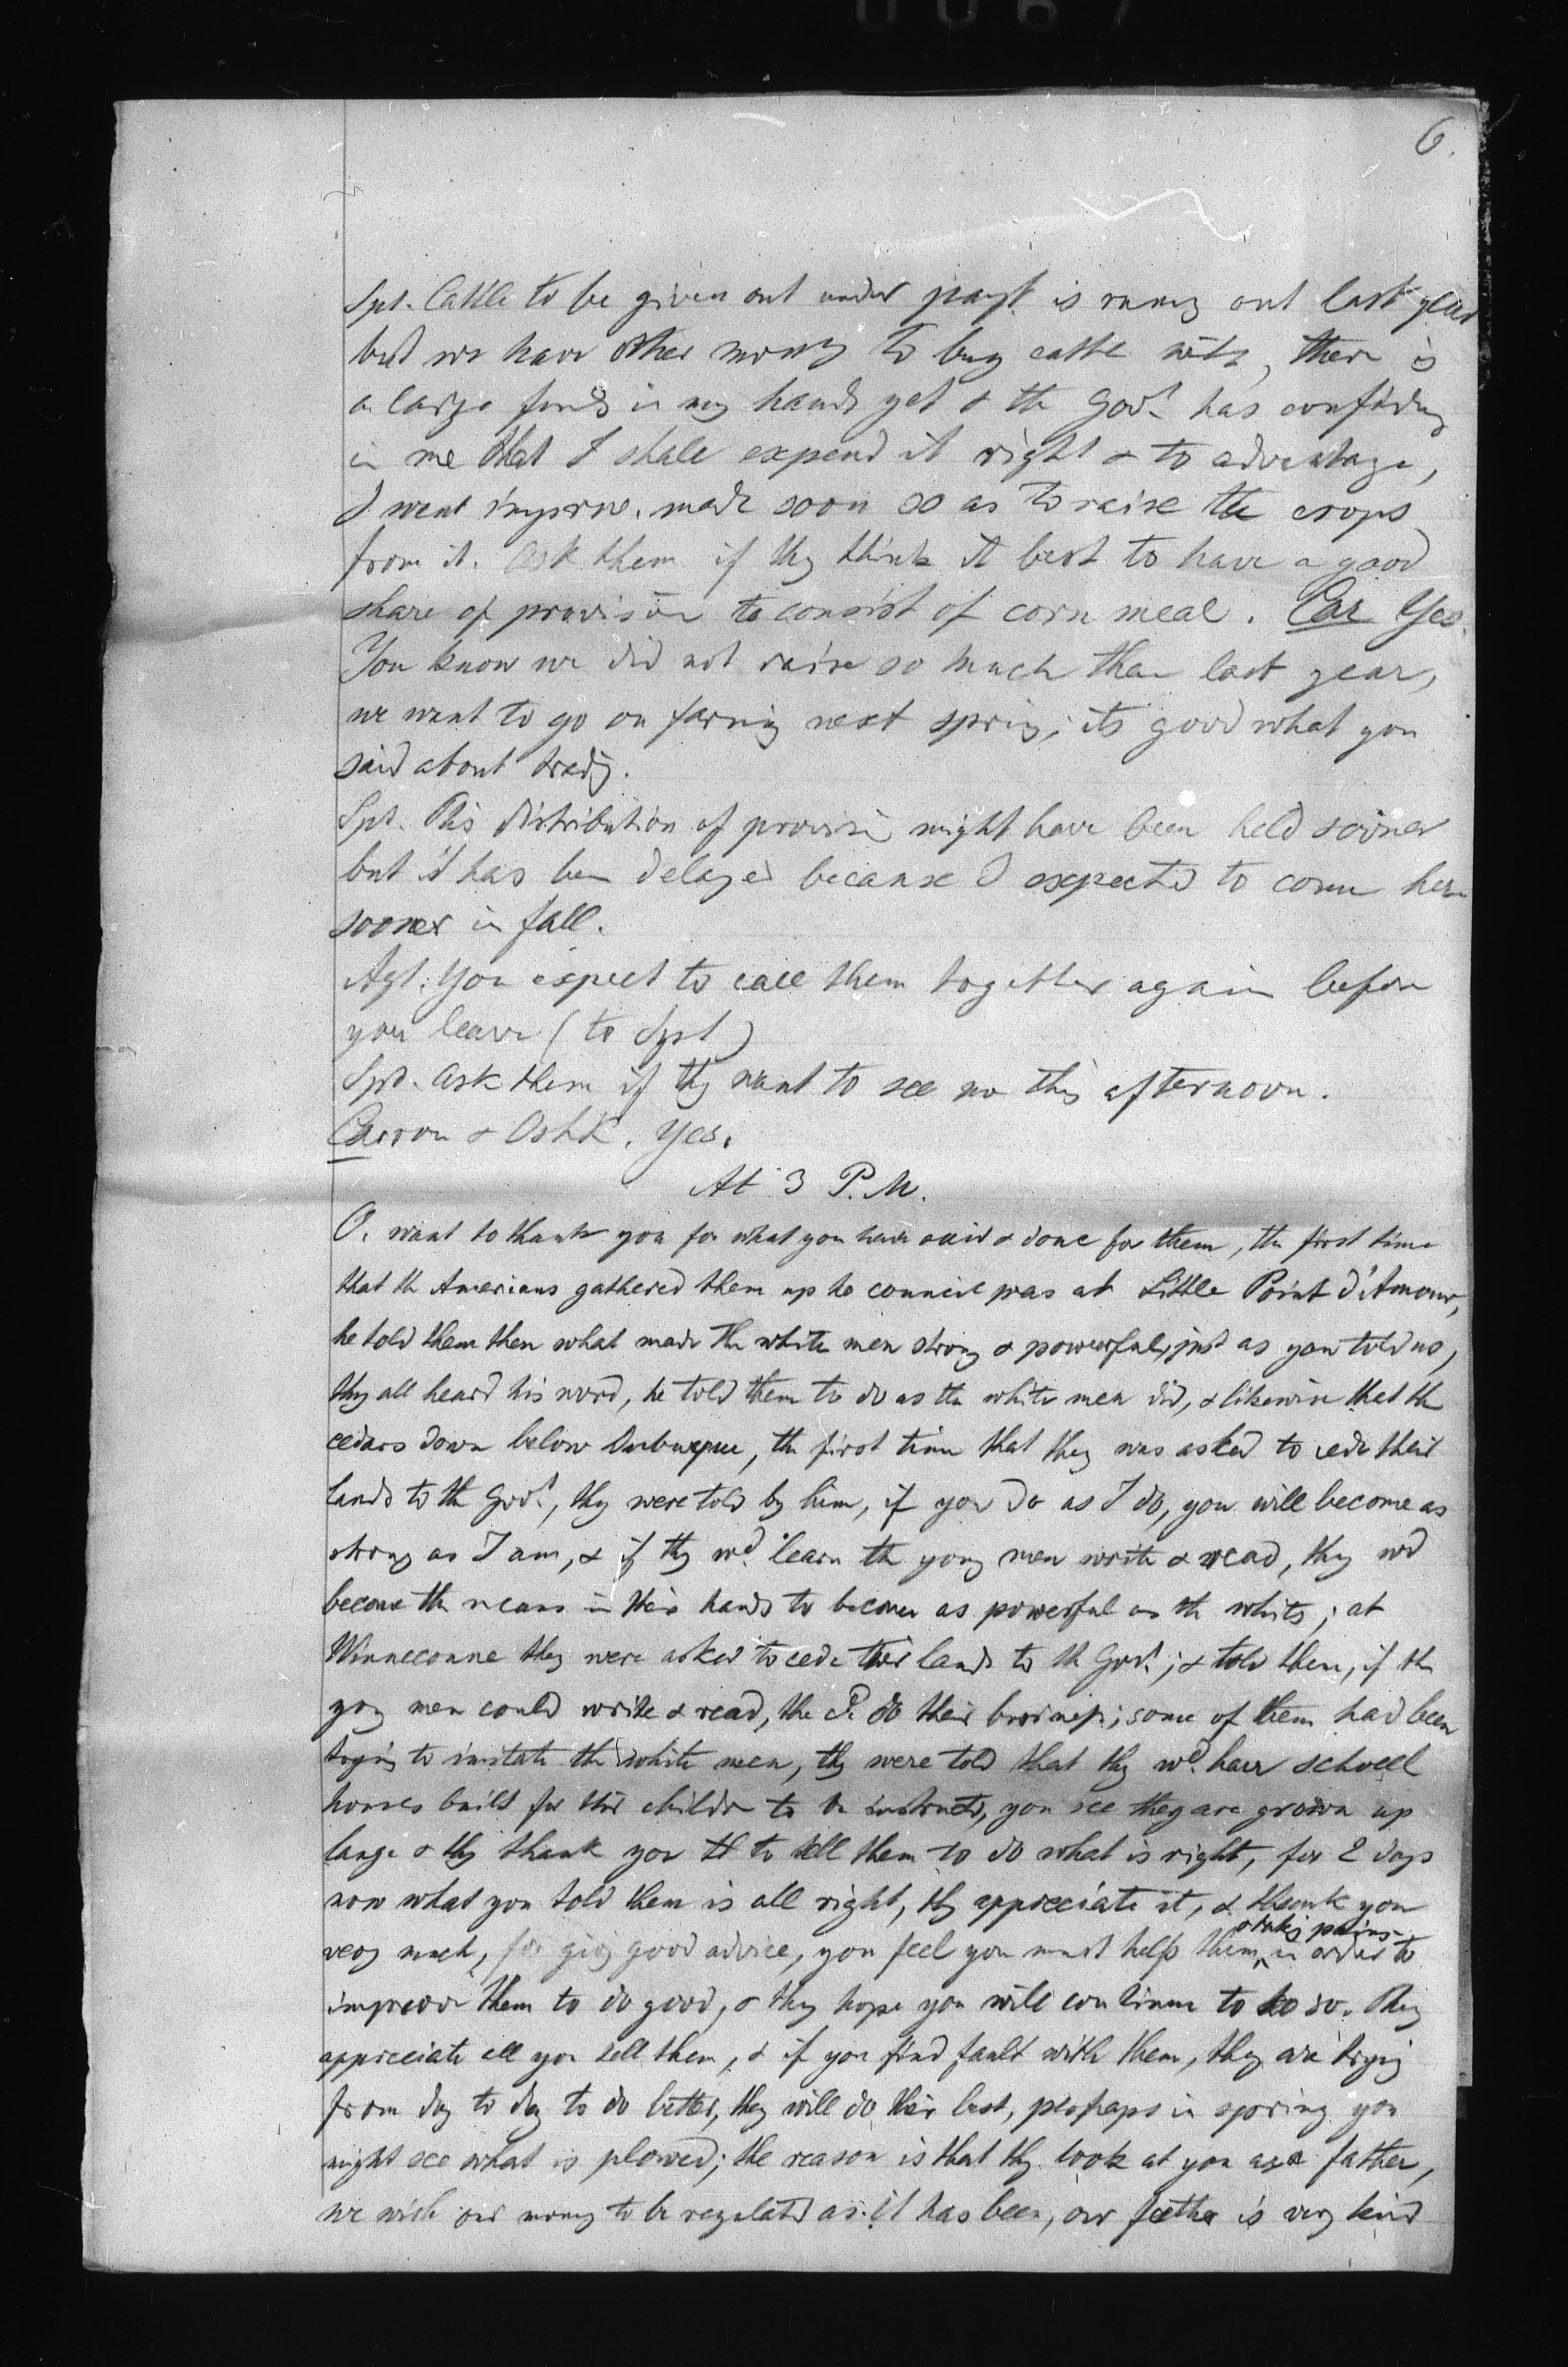 6.
Spt. Cattle to be given out under payt. is runng out last year
but we have other money to buy cattle with, there is
a large funds in my hands yet & the Govt. has confidng
in me that I shall expend it right & to advantage,
I want improve. made soon so as to raise the crops
from it. Ask them if thy think it best to have a good
share of provision to consist of corn meal. Car Yes.
You know we did not raise so much than last year,
we want to go on farmig next sprig; its good what you
said about tradg.
Spt. This distribution of provisi might have been held sooner
but it has ben delayed because I expected to come here
sooner in fall.
Agt. You expect to call them together again before
you leave (to Spt)
Spt. Ask them if thy want to see me this afternoon.
Carron & Oshk. Yes.
At 3 P.M.
O. want to thank you for what you have said & done for them, the first time
that th Americans gathered them up to council was at Little Point d'Amour,
he told them then what made the white men strong & powerful, just as you told us,
thy all heard his word, he told them to do as the white men did, & likewise that the
cedars down below Dubuque, the first time that they was asked to cede their
lands to th Govt., thy were told by him, if you do as I do, you will become as
strong as I am, & if thy wd. learn th yong men write & read, thy wd
become the means in their hands to become as powerful as th whits; at
Winneconne they were asked to cede their lands to th Govt.; & told them, if the
yong men could write & read, the P. do their business; some of them had been
tryig to imitate the white men, thy were told that thy wd. have school
houses built for their childrn to be instructd, you see they are grown up
large & thy thank you tt to tell them to do what is right, for 2 days
now what you told them is all right, thy appreciate it, & thank you
& takig pains
very much, for givg good advice, you feel you must help them, in order to
improve them to do good, & they hope you will continue to do so. They
appreciate all you tell them, & if you find fault with them, they are tryig
from day to day to do better, they will do their best, perhaps in spring you
might see what is plowed; the reason is that thy look at you as a father,
we wish our money to be regulatd as it has been, our father is very kind